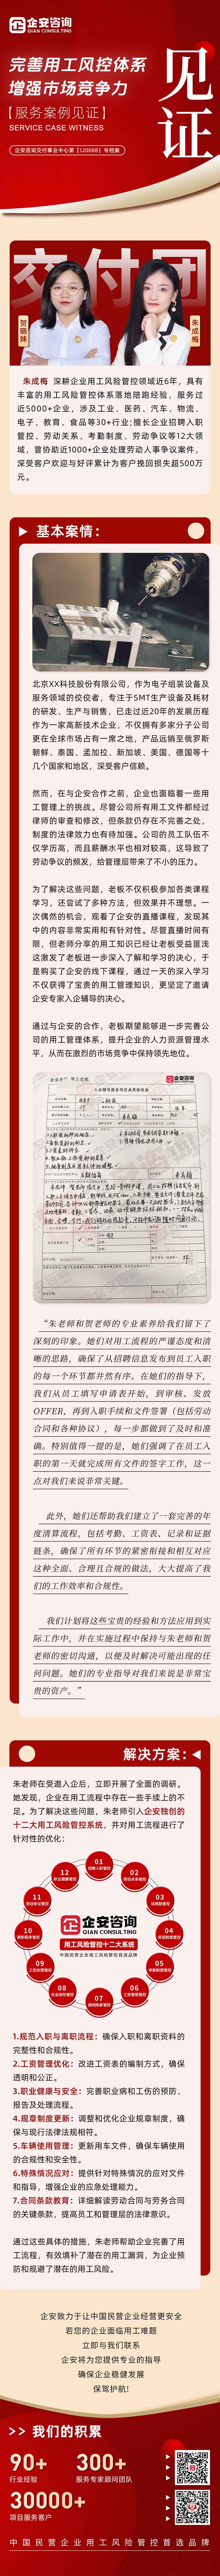 企安咨询
QIAN CONSULTING
完善用工风控体系
增强市场竞争力
【服务案例见证】
SERVICE CASE WITNESS
企安咨询交付事业中心第【120088】号档案
见证
交付团
贺晓妹
朱成梅
朱成梅 深耕企业用工风险管控领域近6年，具有
丰富的用工风险管控体系落地陪跑经验，服务过
近5000+企业，涉及工业、医药、汽车、物流、
电子、教育、食品等30+行业；擅长企业招聘入职
管控、劳动关系、考勤制度、劳动争议等12大领
域，曾协助近1000+企业处理劳动人事争议案件，
深受客户欢迎与好评累计为客户挽回损失超500万
元。
基本案情：
北京XX科技股份有限公司，作为电子组装设备及
服务领域的佼佼者，专注于SMT生产设备及耗材
的研发、生产与销售，已走过近20年的发展历程
作为一家高新技术企业，不仅拥有多家分子公司
更在全球市场占有一席之地，产品远销至俄罗斯
朝鲜、泰国、孟加拉、新加坡、美国、德国等十
几个国家和地区，深受客户信赖。
然而，在与企安合作之前，企业也面临着一些用
工管理上的挑战。尽管公司所有用工文件都经过
律师的审查和修改，但条款仍存在不完善之处，
制度的法律效力也有待加强。公司的员工队伍不
仅学历高，而且薪酬水平也相对较高，这导致了
劳动争议的频发，给管理层带来了不小的压力。
为了解决这些问题，老板不仅积极参加各类课程
学习，还尝试了多种方法，但效果并不理想。一
次偶然的机会，观看了企安的直播课程，发现其
中的内容非常实用和有针对性。尽管直播时间有
限，但老师分享的用工知识已经让老板受益匪浅
这激发了老板进一步深入了解和学习的决心，于
是购买了企安的线下课程，通过一天的深入学习
不仅获得了宝贵的用工管理知识，更坚定了邀请
企安专家入企辅导的决心。
通过与企安的合作，老板期望能够进一步完善公
司的用工管理体系，提升企业的人力资源管理水
平，从而在激烈的市场竞争中保持领先地位。
企安咨询
“朱老师和贺老师的专业素养给我们留下了
深刻的印象。她们对用工流程的严谨态度和清
晰的思路，确保了从招聘信息发布到员工入职
的每一个环节都井然有序。在她们的指导下，
我们从员工填写申请表开始，到审核、发放
OFFER，再到入职手续和文件签署（包括劳动
合同和各种协议），每一步都做到了及时和准
确。特别值得一提的是，她们强调了在员工入
职的第一天就完成所有文件的签字工作，这一
点对我们来说非常关键。
此外，她们还帮助我们建立了一套完善的年
度清算流程，包括考勤、工资表、记录和证据
链条，确保了所有环节的紧密衔接和相互对应
这种全面、合理且合规的做法，大大提高了我
们的工作效率和合规性。
我们计划将这些宝贵的经验和方法应用到实
际工作中，并在实施过程中保持与朱老师和贺
老师的密切沟通，以便及时解决可能出现的任
何问题。她们的专业指导对我们来说是非常宝
贵的资产。”
解决方案：
朱老师在受邀入企后，立即开展了全面的调研。
她发现，企业在用工流程中存在一些手续上的不
足。为了解决这些问题，朱老师引入企安独创的
十二大用工风险管控系统，并对用工流程进行了
针对性的优化：
01
02
03
04
05
06
07
08
09
10
11
12
企安咨询
用工风险管控十二大系统
中国民营企业用工风险管控首选品牌
1.规范入职与离职流程：确保入职和离职资料的
完整性和合规性。
2.工资管理优化：改进工资表的编制方式，确保
透明和公正。
3.职业健康与安全：完善职业病和工伤的预防、
报告及处理流程。
4.规章制度更新：调整和优化企业规章制度，确
保与现行法律法规相符。
5.车辆使用管理：更新用车文件，确保车辆使用
的合规性和安全性。
6.特殊情况应对：提供针对特殊情况的应对文件
和指导，增强企业的应急处理能力。
7.合同条款教育：详细解读劳动合同与劳务合同
的关键条款，提高员工和管理层的法律意识。
通过这些具体的措施，朱老师帮助企业完善了用
工流程，有效填补了潜在的用工漏洞，为企业预
防和规避了潜在的用工风险。
企安致力于让中国民营企业经营更安全
若您的企业面临用工难题
立即与我们联系
企安将为您提供专业的指导
确保企业稳健发展
保驾护航!
>> 我们的积累
90+
行业经验
300+
服务专家顾问团队
30000+
项目服务客户
中国民营企业用工风险管控首选品牌